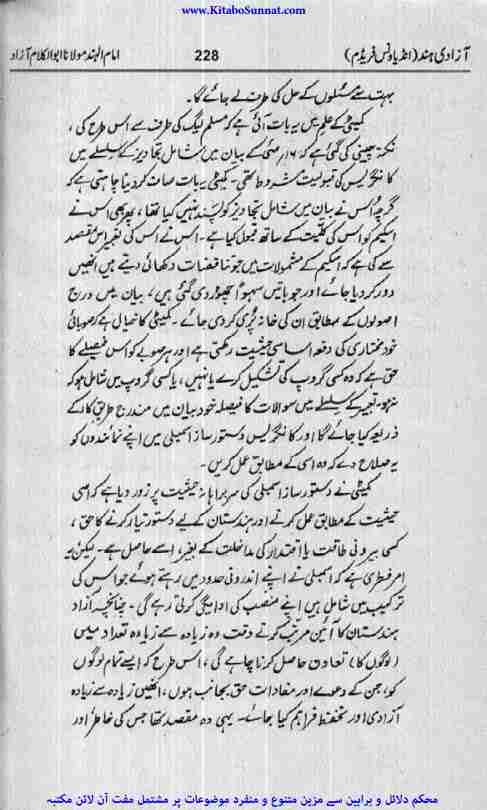 www.KitaboSunnat.com
آزادی ہند (انڈیا ونس فریڈم) 228 امام الہند مولانا ابوالکلام آزاد
بہت سے مسئلوں کے حل کی طرف لے جائے گا۔
کمیٹی کے علم میں یہ بات آئی ہے کہ مسلم لیگ کی طرف سے اس طرح کی
نکتہ چینی کی گئی ہے کہ ۱۶ مئی کے بیان میں شامل تجاویز کے سلسلے میں
کانگریس کی قبولیت مشروط تھی۔ کمیٹی یہ بات صاف کر دینا چاہتی ہے کہ
گرچہ اُس نے بیان میں شامل تجاویز کو پسند نہیں کیا تھا، پھر بھی اس نے
اسکیم کو اس کی کلیت کے ساتھ قبول کیا ہے۔ اس نے اس کی تعبیر اس مقصد
سے کی ہے کہ اسکیم کے مشمولات میں جو تناقضات دکھائی دیتے ہیں انھیں
دور کر دیا جائے اور جو باتیں سہواً چھوڑ دی گئی ہیں، بیان میں درج
اصولوں کے مطابق ان کی خانہ پُری کر دی جائے۔ کمیٹی کا خیال ہے صوبائی
خود مختاری کی دفعہ اساسی حیثیت رکھتی ہے اور ہر صوبے کو اس فیصلے کا
حق ہے کہ وہ کسی گروپ کی تشکیل کرے یا نہیں، یا کسی گروپ میں شامل ہو کہ
نہ ہو۔ تعبیر کے سلسلے میں سوالات کا فیصلہ خود بیان میں مندرج طریق کار کے
ذریعہ کیا جائے گا اور کانگریس دستور ساز اسمبلی میں اپنے نمائندوں کو
یہ صلاح دے کہ وہ اسی کے مطابق عمل کریں۔
کمیٹی نے دستور ساز اسمبلی کی سربراہانہ حیثیت پر زور دیا ہے کہ اسی
حیثیت کے مطابق عمل کرنے اور ہندستان کے لیے دستور تیار کرنے کا حق،
کسی بیرونی طاقت یا اقتدار کی مداخلت کے بغیر، اسے حاصل ہے۔ لیکن یہ
امر فطری ہے کہ اسمبلی نے اپنے اندرونی حدود میں رہتے ہوئے جو اس کی
ترکیب میں شامل ہیں اپنے منصب کی ادائیگی کرتی رہے گی۔ چنانچہ آزاد
ہندستان کا آئین مرتب کرتے وقت وہ زیادہ سے زیادہ تعداد میں
(لوگوں کا) تعاون حاصل کرنا چاہے گی، اس طرح کہ ایسے تمام لوگوں
کو، جن کے دعوے اور مفادات حق بجانب ہوں، انھیں زیادہ سے زیادہ
آزادی اور تحفظ فراہم کیا جائے۔ یہی وہ مقصد تھا جس کی خاطر اور
محکم دلائل و براہین سے مزین متنوع و منفرد موضوعات پر مشتمل مفت آن لائن مکتبہ